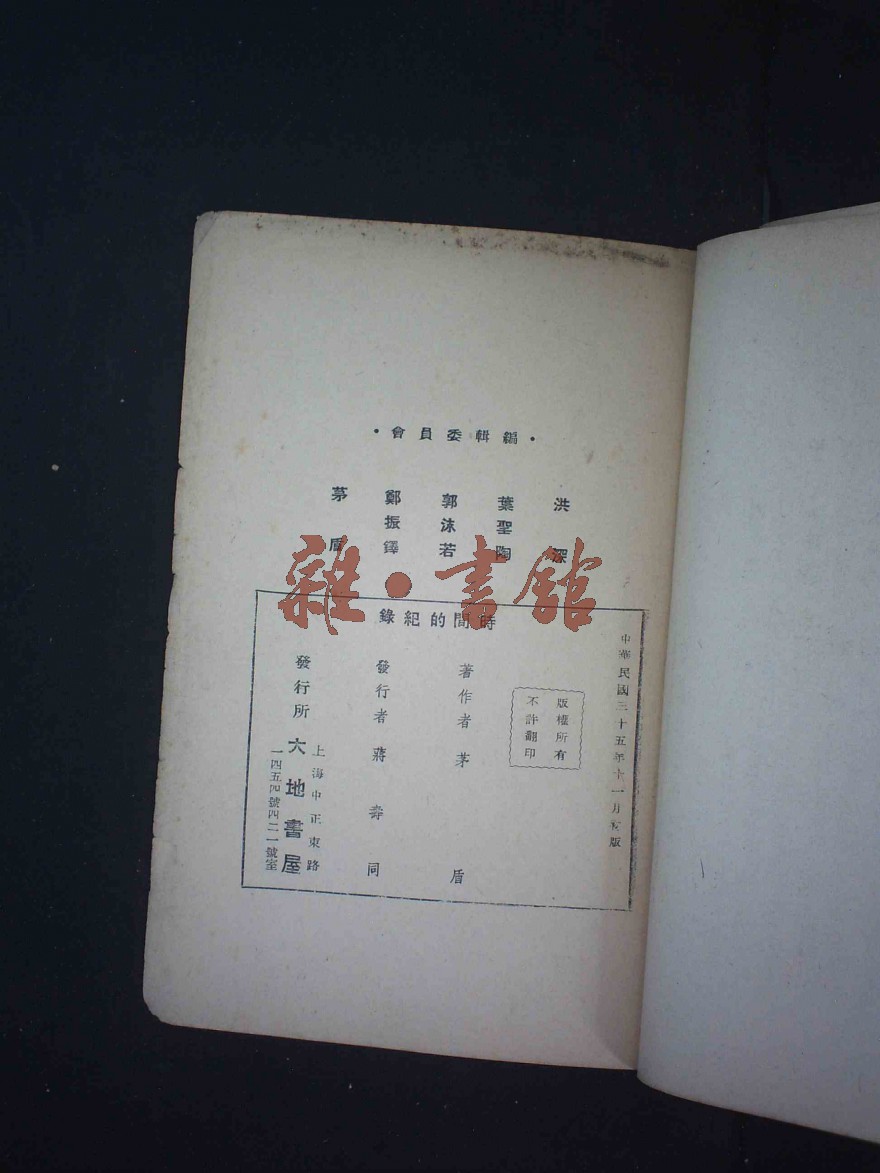 •編輯委員會•
洪深
葉聖陶
郭沫若
鄭振鐸
茅盾
雜•書館
時間的紀錄
中華民國三十五年十一月初版
版權所有
不許翻印
著作者 茅盾
發行者 蔣壽同
發行所 大地書屋
上海中正東路
一四五四號四二一號室